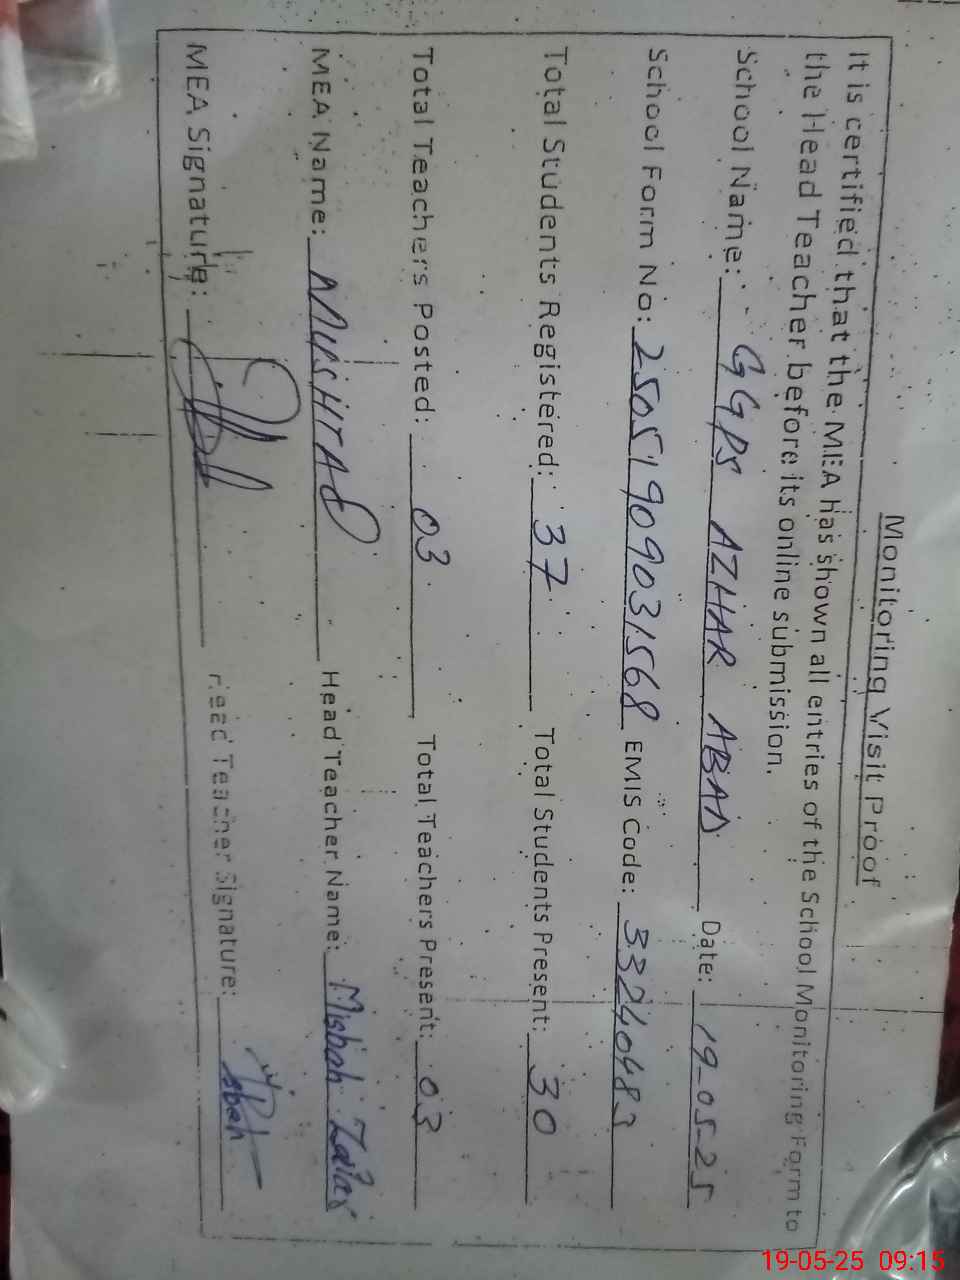 Monitoring Visit Proof
It is certified that the MEA has shown all entries of the School Monitoring Form to
the Head Teacher before its online submission.
School Name: GGPS AZHAR ABAD Date: 19-05-25
School Form No: 25051909031568 EMIS Code: 33240483
Total Students Registered: 37 Total Students Present: 30
Total Teachers Posted: 03 Total Teachers Present: 03
MEA Name: MUSHTAQ Head Teacher Name: Misbah
MEA Signature: Head Teacher Signature:
19-05-25 09:15